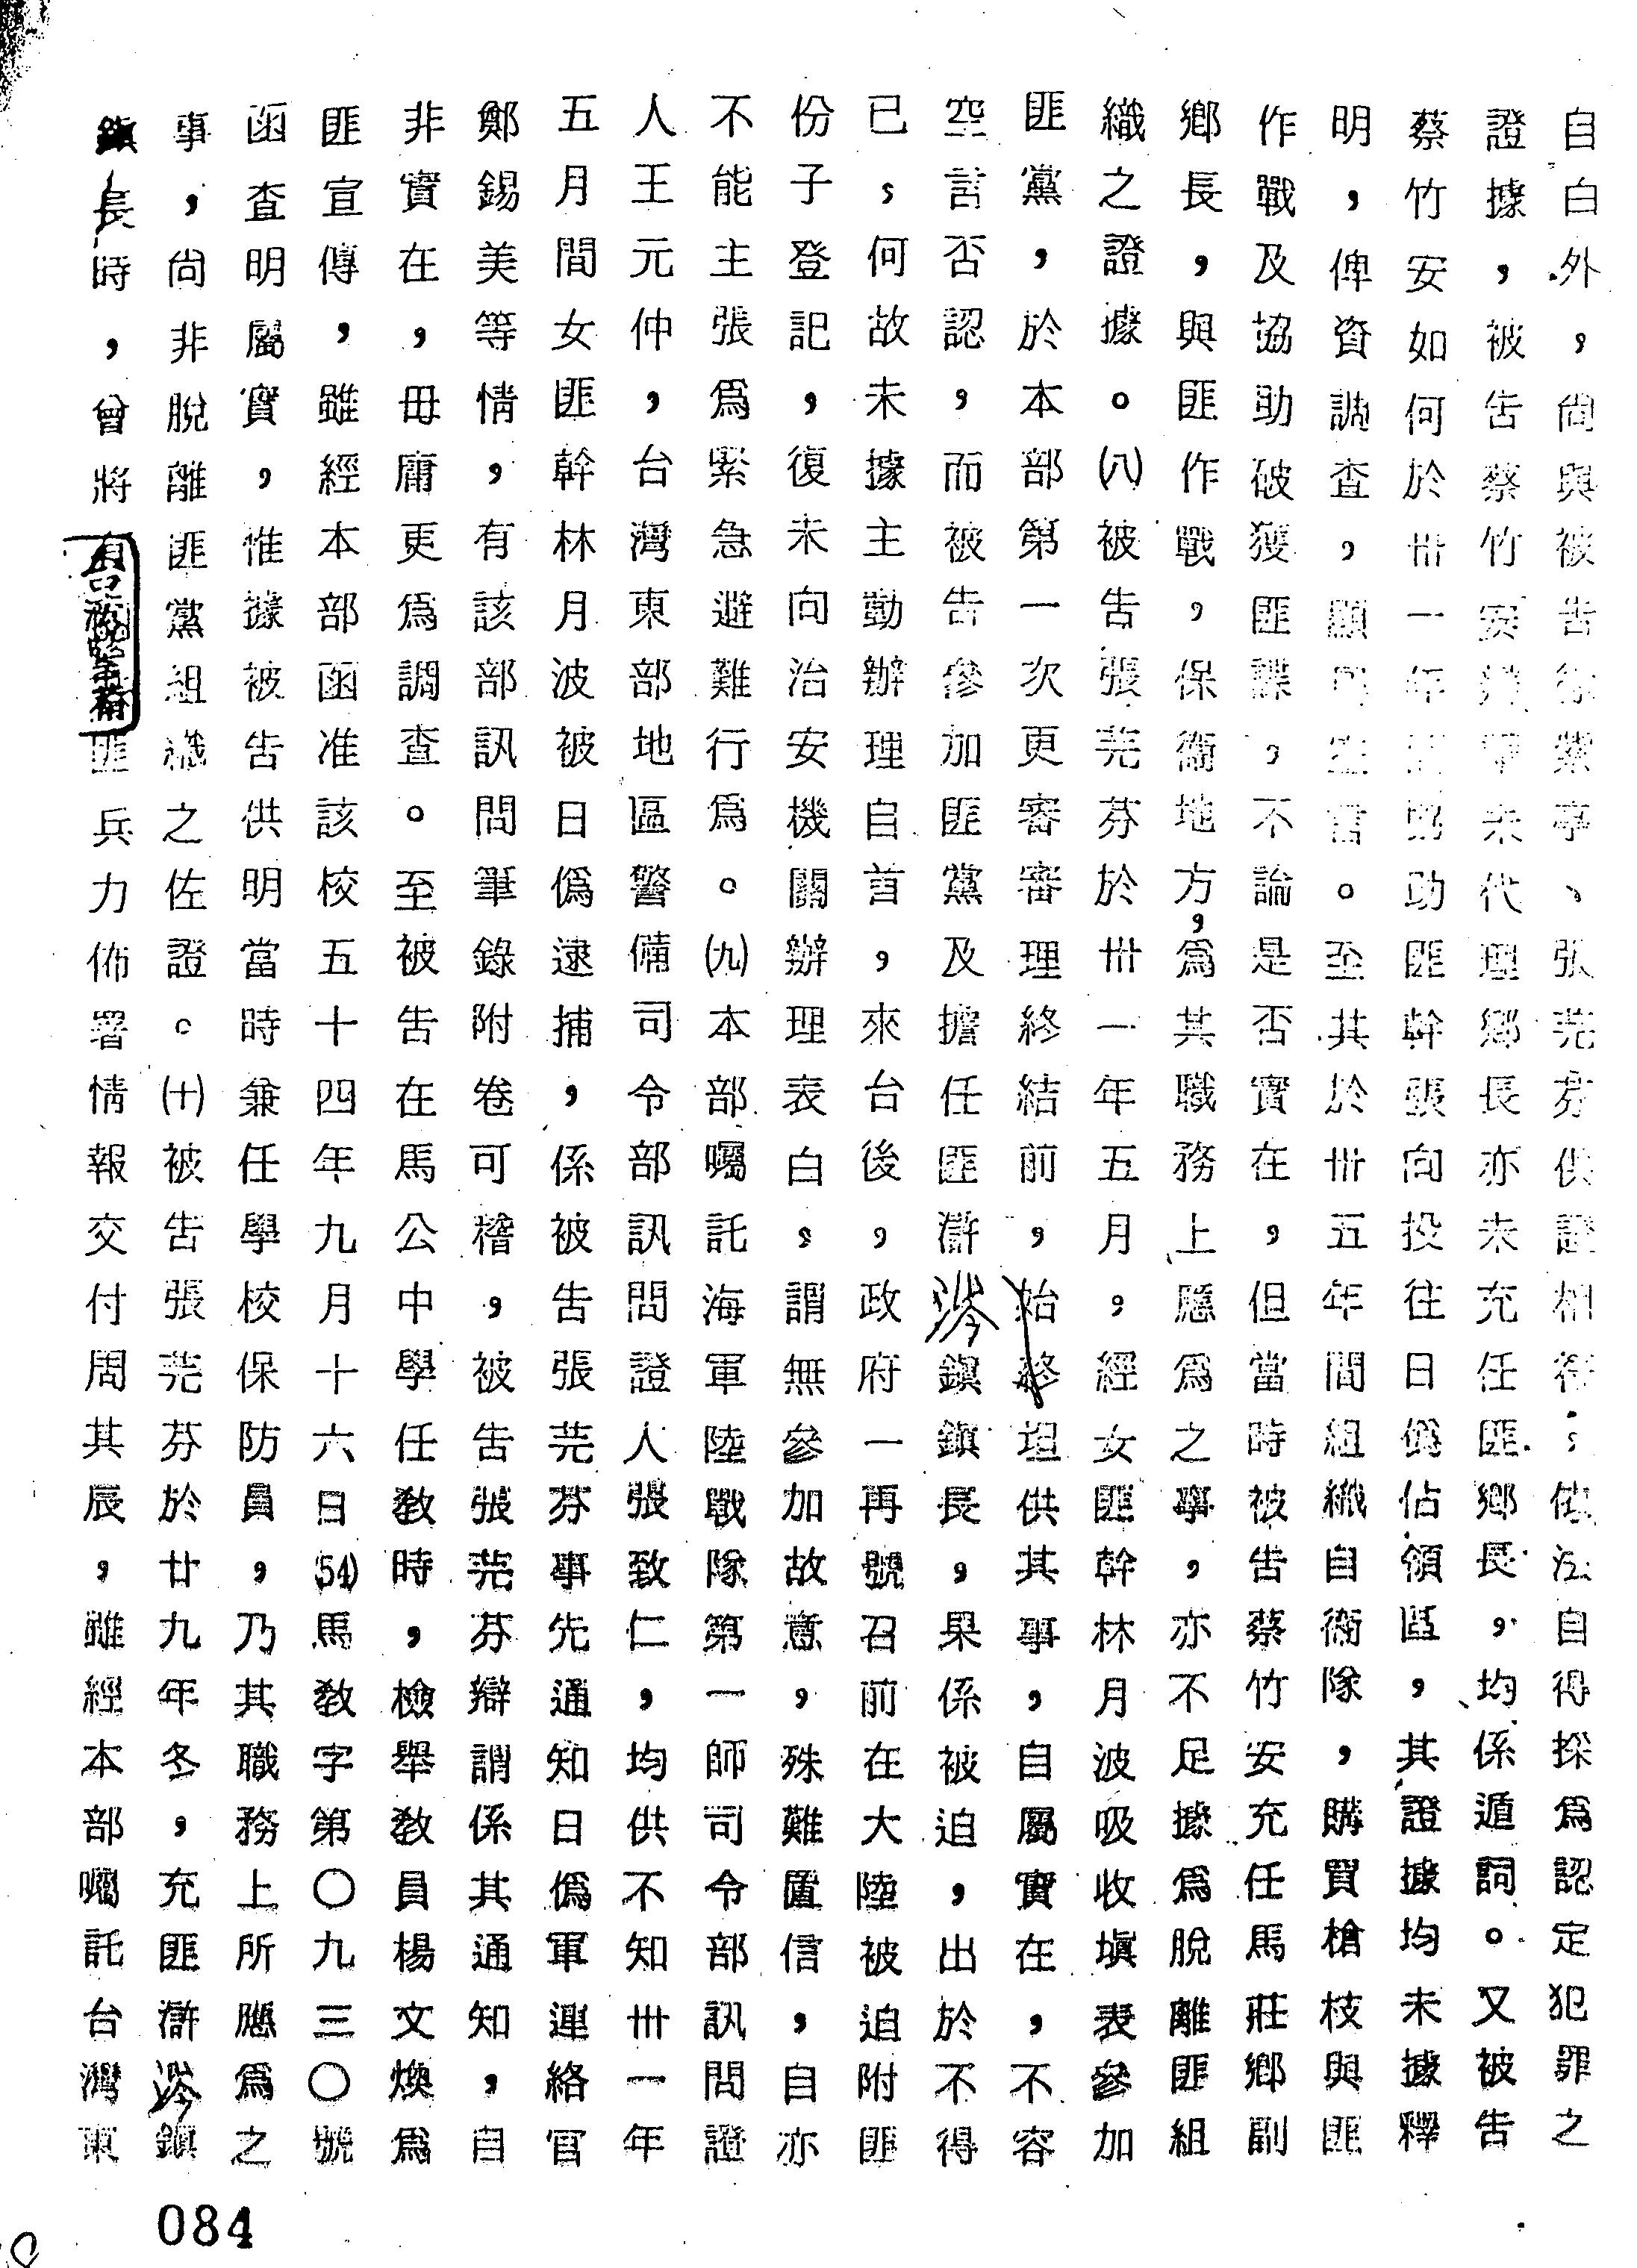 自白外，尚與被告徐紫亭、張芫芬供證相符；依法自得採爲認定犯罪之
證據，被告蔡竹安辯謂未代理鄉長亦未充任匪鄉長，均係遁詞。又被告
蔡竹安如何於卅一年間協助匪幹張向投往日僞佔領區，其證據均未據釋
明，俾資調查，顯屬空言。至其於卅五年間組織自衞隊，購買槍枝與匪
作戰及協助破獲匪諜，不論是否實在，但當時被告蔡竹安充任馬莊鄉副
鄉長，與匪作戰，保衞地方，爲其職務上應爲之事，亦不足據爲脫離匪組
織之證據。㈧被告張芫芬於卅一年五月，經女匪幹林月波吸收塡表參加
匪黨，於本部第一次更審審理終結前，始終坦供其事，自屬實在，不容
空言否認，而被告參加匪黨及擔任匪滸涔鎮鎮長，果係被迫，出於不得
已，何故未據主動辦理自首，來台後，政府一再號召前在大陸被迫附匪
份子登記，復未向治安機關辦理表白，謂無參加故意，殊難置信，自亦
不能主張爲緊急避難行爲。㈨本部囑託海軍陸戰隊第一師司令部訊問證
人王元仲，台灣東部地區警備司令部訊問證人張致仁，均供不知卅一年
五月間女匪幹林月波被日僞逮捕，係被告張芫芬事先通知日僞軍連絡官
鄭錫美等情，有該部訊問筆錄附卷可稽，被告張芫芬辯謂係其通知，自
非實在，毋庸更爲調查。至被告在馬公中學任教時，檢舉教員楊文煥，爲
匪宣傳，雖經本部函准該校五十四年九月十六日(54)馬教字第〇九三〇號
函查明屬實，惟據被告供明當時兼任學校保防員，乃其職務上所應爲之
事，尚非脫離匪黨組織之佐證。㈩被告張芫芬於廿九年冬，充匪滸涔鎮
鎮長時，曾將匪兵力佈署情報交付周其辰，雖經本部囑託台灣東
084